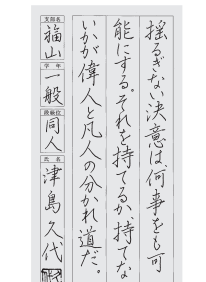 揺るぎない決意は、何事をも可
能にする。それを持てるか、持てな
いかが偉人と凡人の分かれ道だ。
支部名
福山
学年
一般
段級位
同人
氏名
津島久代